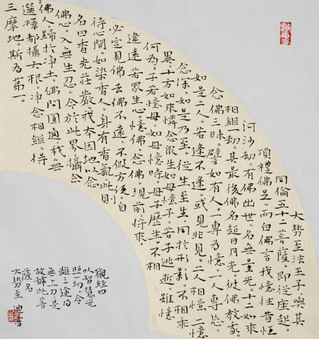 大勢至法王子與其
同倫五十二菩薩即從座起
頂禮佛足而白佛言我憶往昔恆
河沙劫有佛出世名無量光十二如來
相繼一劫其最後佛名超日月光彼佛教我
念佛三昧譬如有人一專為憶一人專忘
如是二人若逢不逢或見非見二人相憶二
憶念深如是乃至從生至生同於形影不相乖
異十方如來憐念眾生如母憶子若子逃逝雖憶
何為子若憶母如母憶時母子歷生不相
違遠若眾生心憶佛念佛現前當來
必定見佛去佛不遠不假方便自
得心開如染香人身有香氣此則
名曰香光莊嚴我本因地以念
佛心入無生忍今於此界攝念
佛人歸於淨土佛問圓通我無
選擇都攝六根淨念相繼得
三摩地斯為第一
觀經曰
以智慧光
照一切令
離三塗得
無上力是
故號此菩
薩名
大勢至